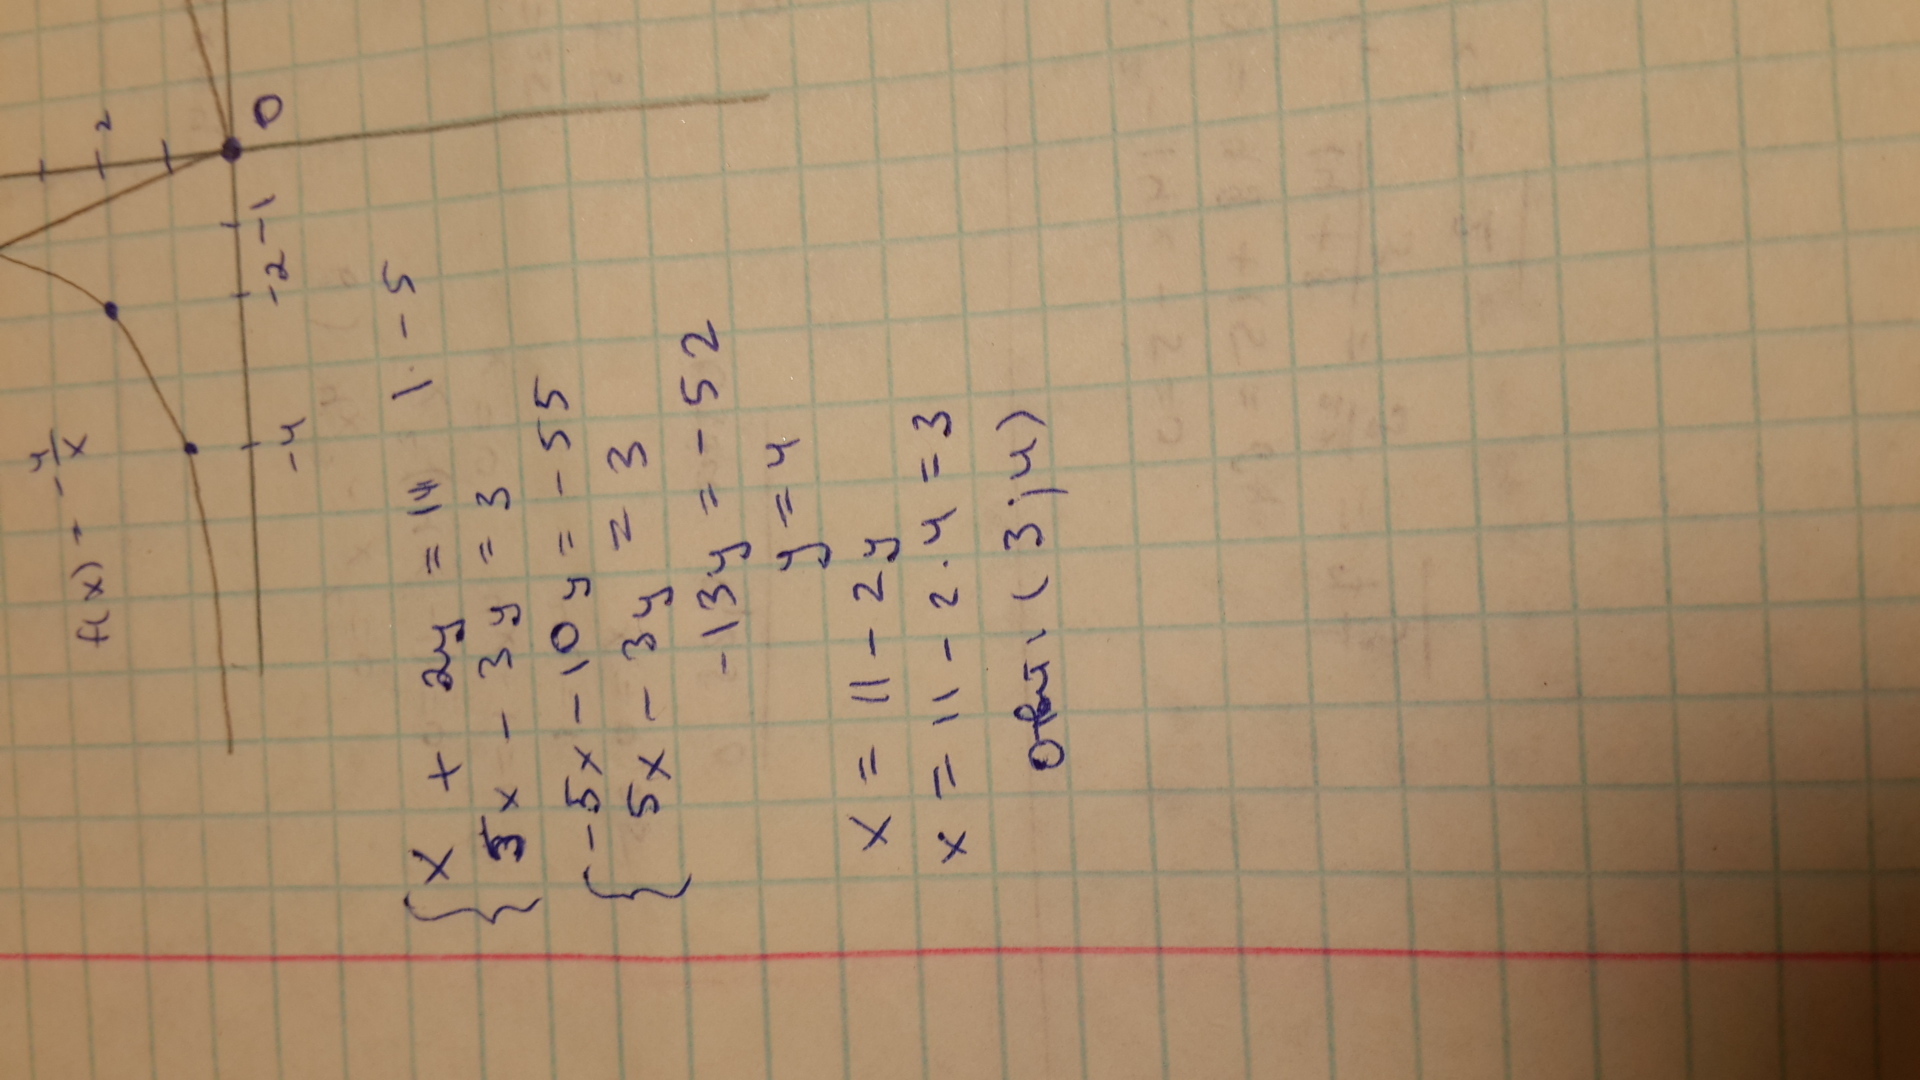 f(x) = -4/x
2
0
-4 -2 -1
{ x + 2y = 11 | · -5
5x - 3y = 3
{ -5x - 10y = -55
5x - 3y = 3
-13y = -52
y = 4
x = 11 - 2y
x = 11 - 2·4 = 3
Ответ. (3; 4)